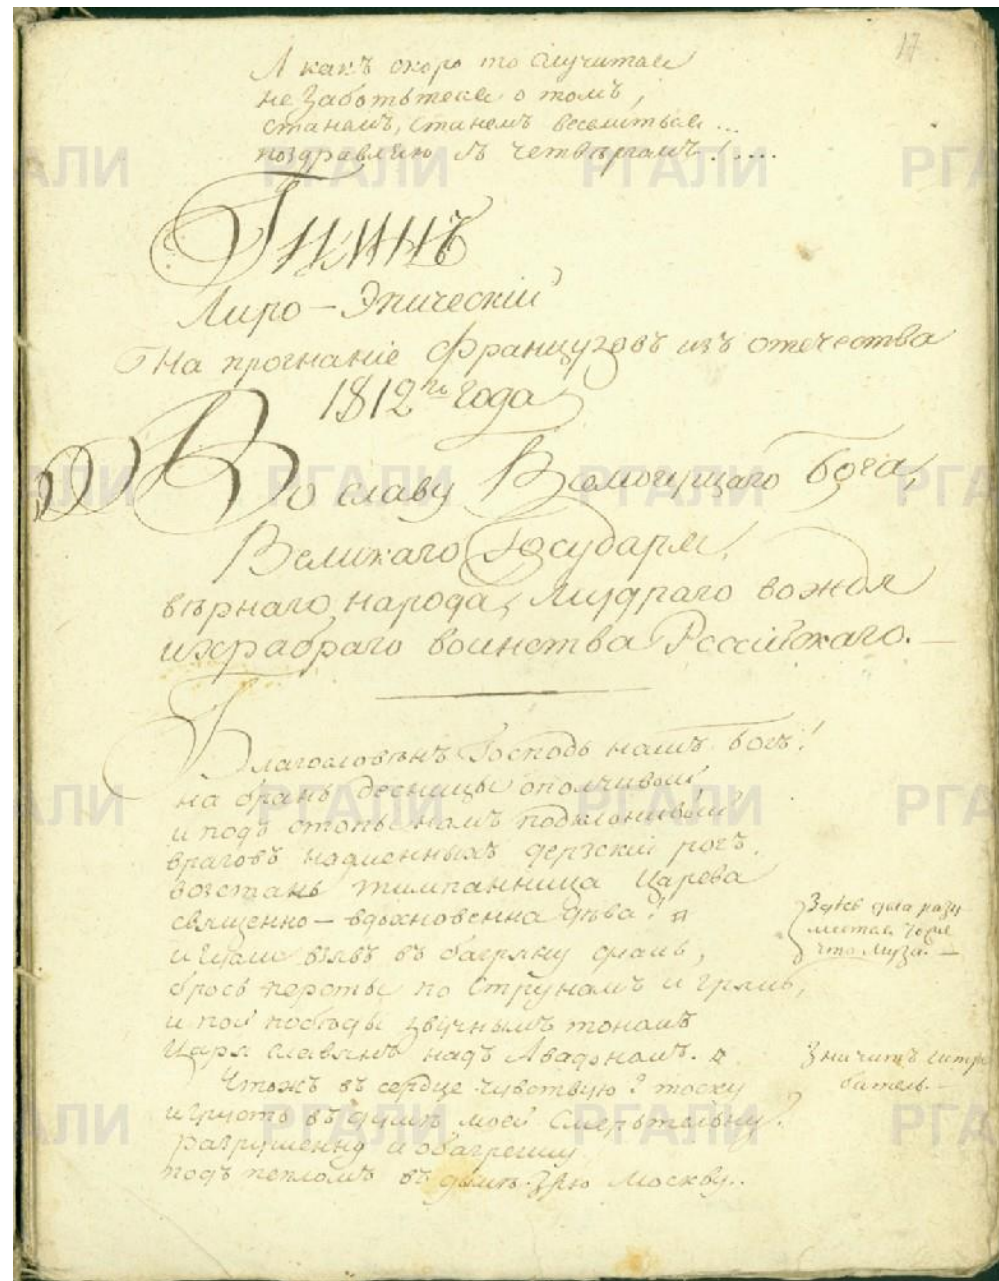 17
А какъ скоро то случится
не заботьтеся о томъ,
станемъ, станемъ веселиться...
поздравляю съ четвергомъ!....
Гимнъ
Лиро-Эпическій
На прогнаніе французовъ изъ отечества
1812го года
Во славу Всемогущаго Бога,
Великаго Государя,
вѣрнаго народа, мудраго вождя
и храбраго воинства Россійскаго.—
Благословѣнъ Господь нашъ богъ!
на брань десницы ополчивый
и подъ стопы намъ подклонивый
враговъ надменныхъ дерзскій рогъ.
возстань тимпанница Царева
священно-вдохновенна дѣва!
Здѣсь она разу
мѣется
что Муза.—
и гласъ взявъ въ
брось персты по струнамъ и грянь,
и пой побѣды звучнымъ тономъ
Царя славянъ надъ Авадономъ.
Значитъ истре
битель.—
Чтожъ въ сердце чувствую? тоску
и грусть въ душѣ моей смертельну?
разрушенну и
подъ пепломъ въ дымѣ зрю Москву..
РГАЛИ